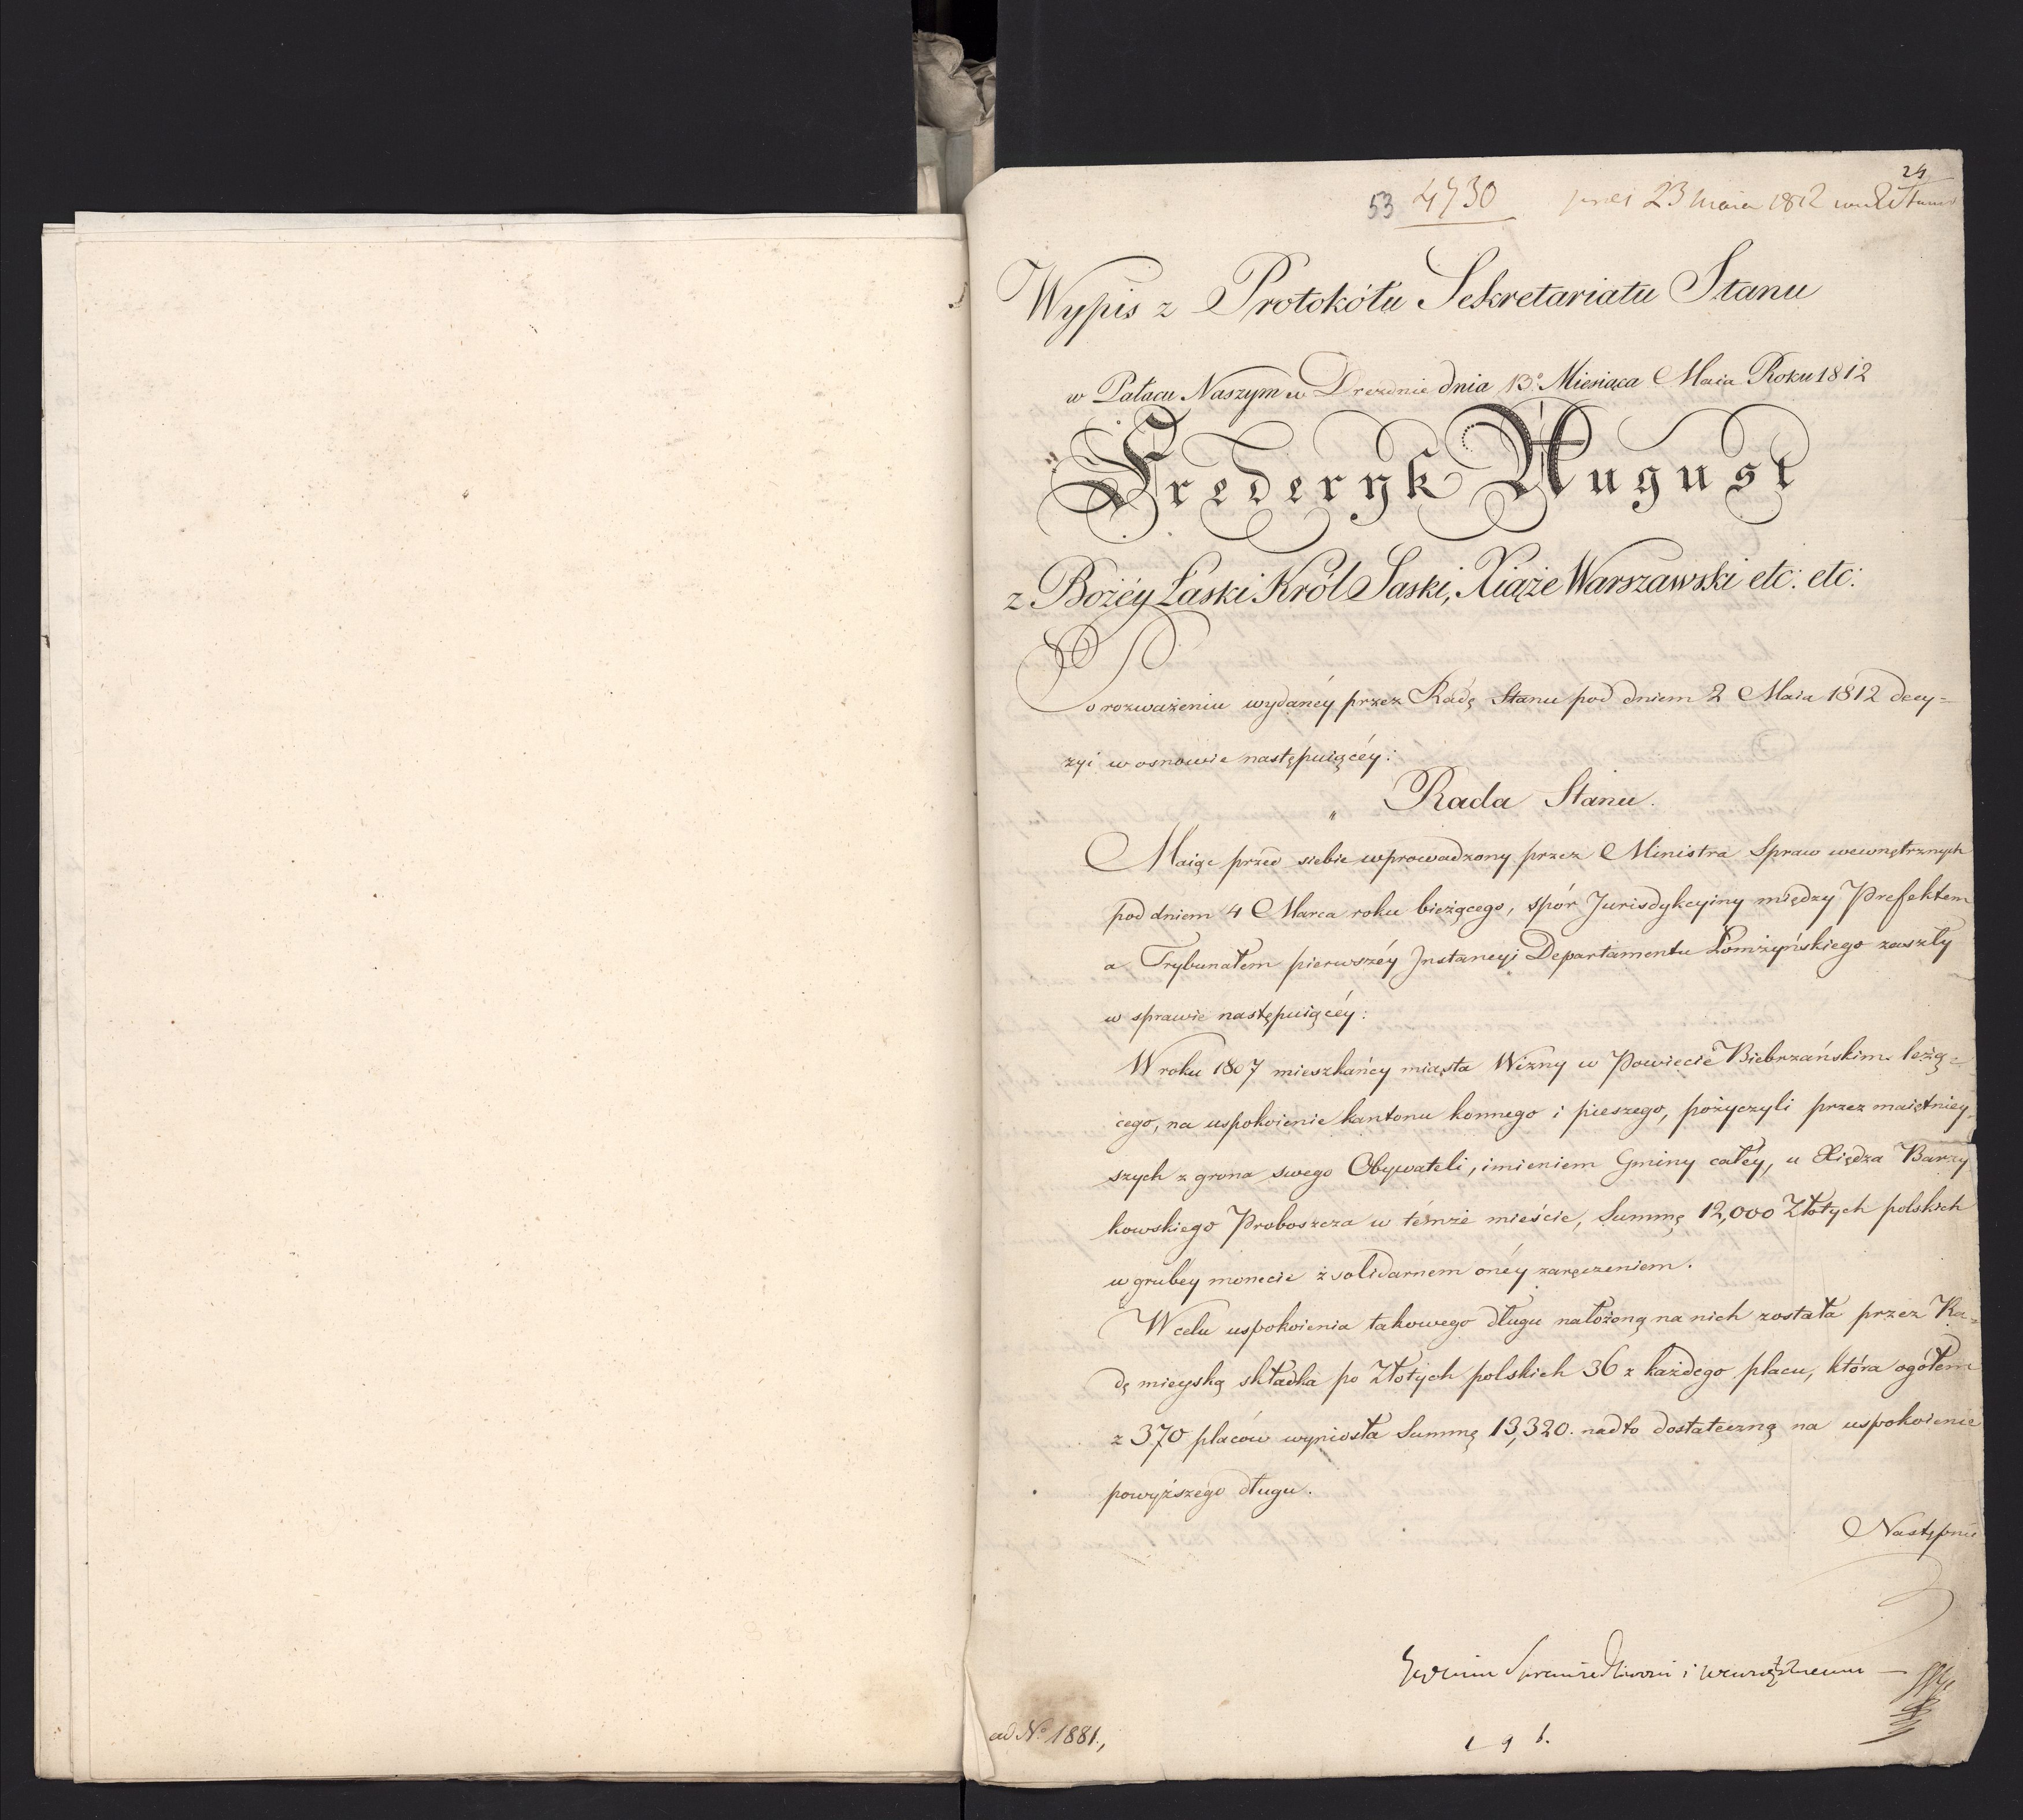 24
53 4730 23 Maia 1812
Wypis z Protokółu Sekretariatu Stanu
w Pałacu Naszym w Dreznie dnia 13º Miesiąca Maia Roku 1812
Frederyk August
z Bożéy Łaski Król Saski, Xiąże Warszawski etc: etc:
Po rozważeniu wydanéy przez Radę Stanu pod dniem 2 Maia 1812 decy=
zyi w osnowie następuiącéy:
„ Rada Stanu.
Maiąc przed siebie wprowadzony przez Ministra Spraw wewnętrznych
pod dniem 4 Marca roku bieżącego, spór Jurisdykcyiny między Prefektem
a Trybunałem pierwszéy Instancyi Departamentu Łomżyńskiego zaszły
w sprawie następuiącéy:
W roku 1807 mieszkańcy miasta Wizny w Powiecie Biebrzańskim leżą=
cego, na uspokoienie kantonu konnego i pieszego, pożyczyli przez maiętniey=
szych z grona swego Obywateli, imieniem Gminy całéy, u Xiędza Barzy
kowskiego Proboszcza w témże mieście, Summę 12,000 Złotych polskich
w grubey monecie z solidarnem onéy zaręczeniem.
W celu uspokoienia takowego długu nałożoną na nich została przez Ra=
dę mieyską składka po Złotych polskich 36 z każdego placu, która ogółem
z 370 placów wyniosła Summę 13,320. nadto dostateczną na uspokoienie
powyższego długu.
Następnie
Sprawiedliwości i wewnętrznemu
ad Nº 1881.,